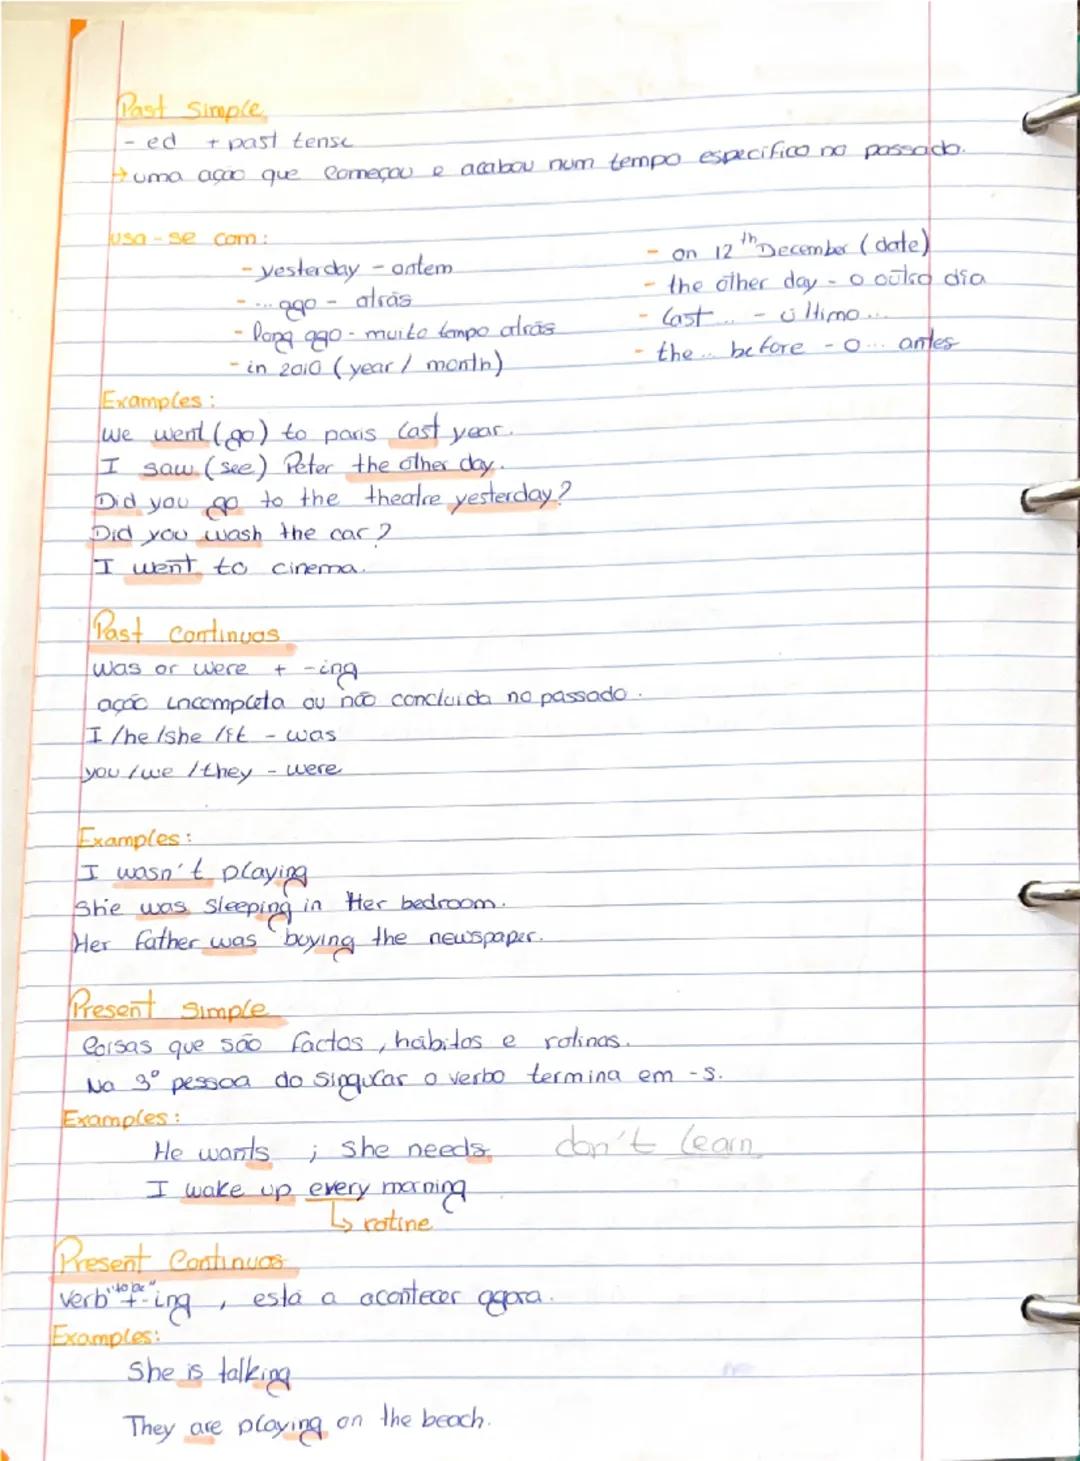 Past Simple
- ed + past tense
→ uma ação que começou e acabou num tempo específico no passado.
usa-se com:
- yesterday - ontem
- ... ago - atrás
- long ago - muito tempo atrás
- in 2010 (year / month)
- on 12th December (date)
- the other day - o outro dia
- last ... - último ...
- the ... before - o ... antes
Examples:
We went (go) to paris last year.
I saw (see) Peter the other day.
Did you go to the theatre yesterday?
Did you wash the car?
I went to cinema.
Past Continuos
Was or were + -ing
ação incompleta ou não concluida no passado.
I /he /she /it - was
you /we /they - were
Examples:
I wasn't playing
She was sleeping in Her bedroom.
Her father was buying the newspaper.
Present Simple
Coisas que são factos, hábitos e rotinas.
Na 3º pessoa do singular o verbo termina em -s.
Examples:
He wants ; she needs don't learn
I wake up every morning
↳ rotine
Present Continuos
Verb "to be" + -ing, está a acontecer agora.
Examples:
She is talking
They are playing on the beach.